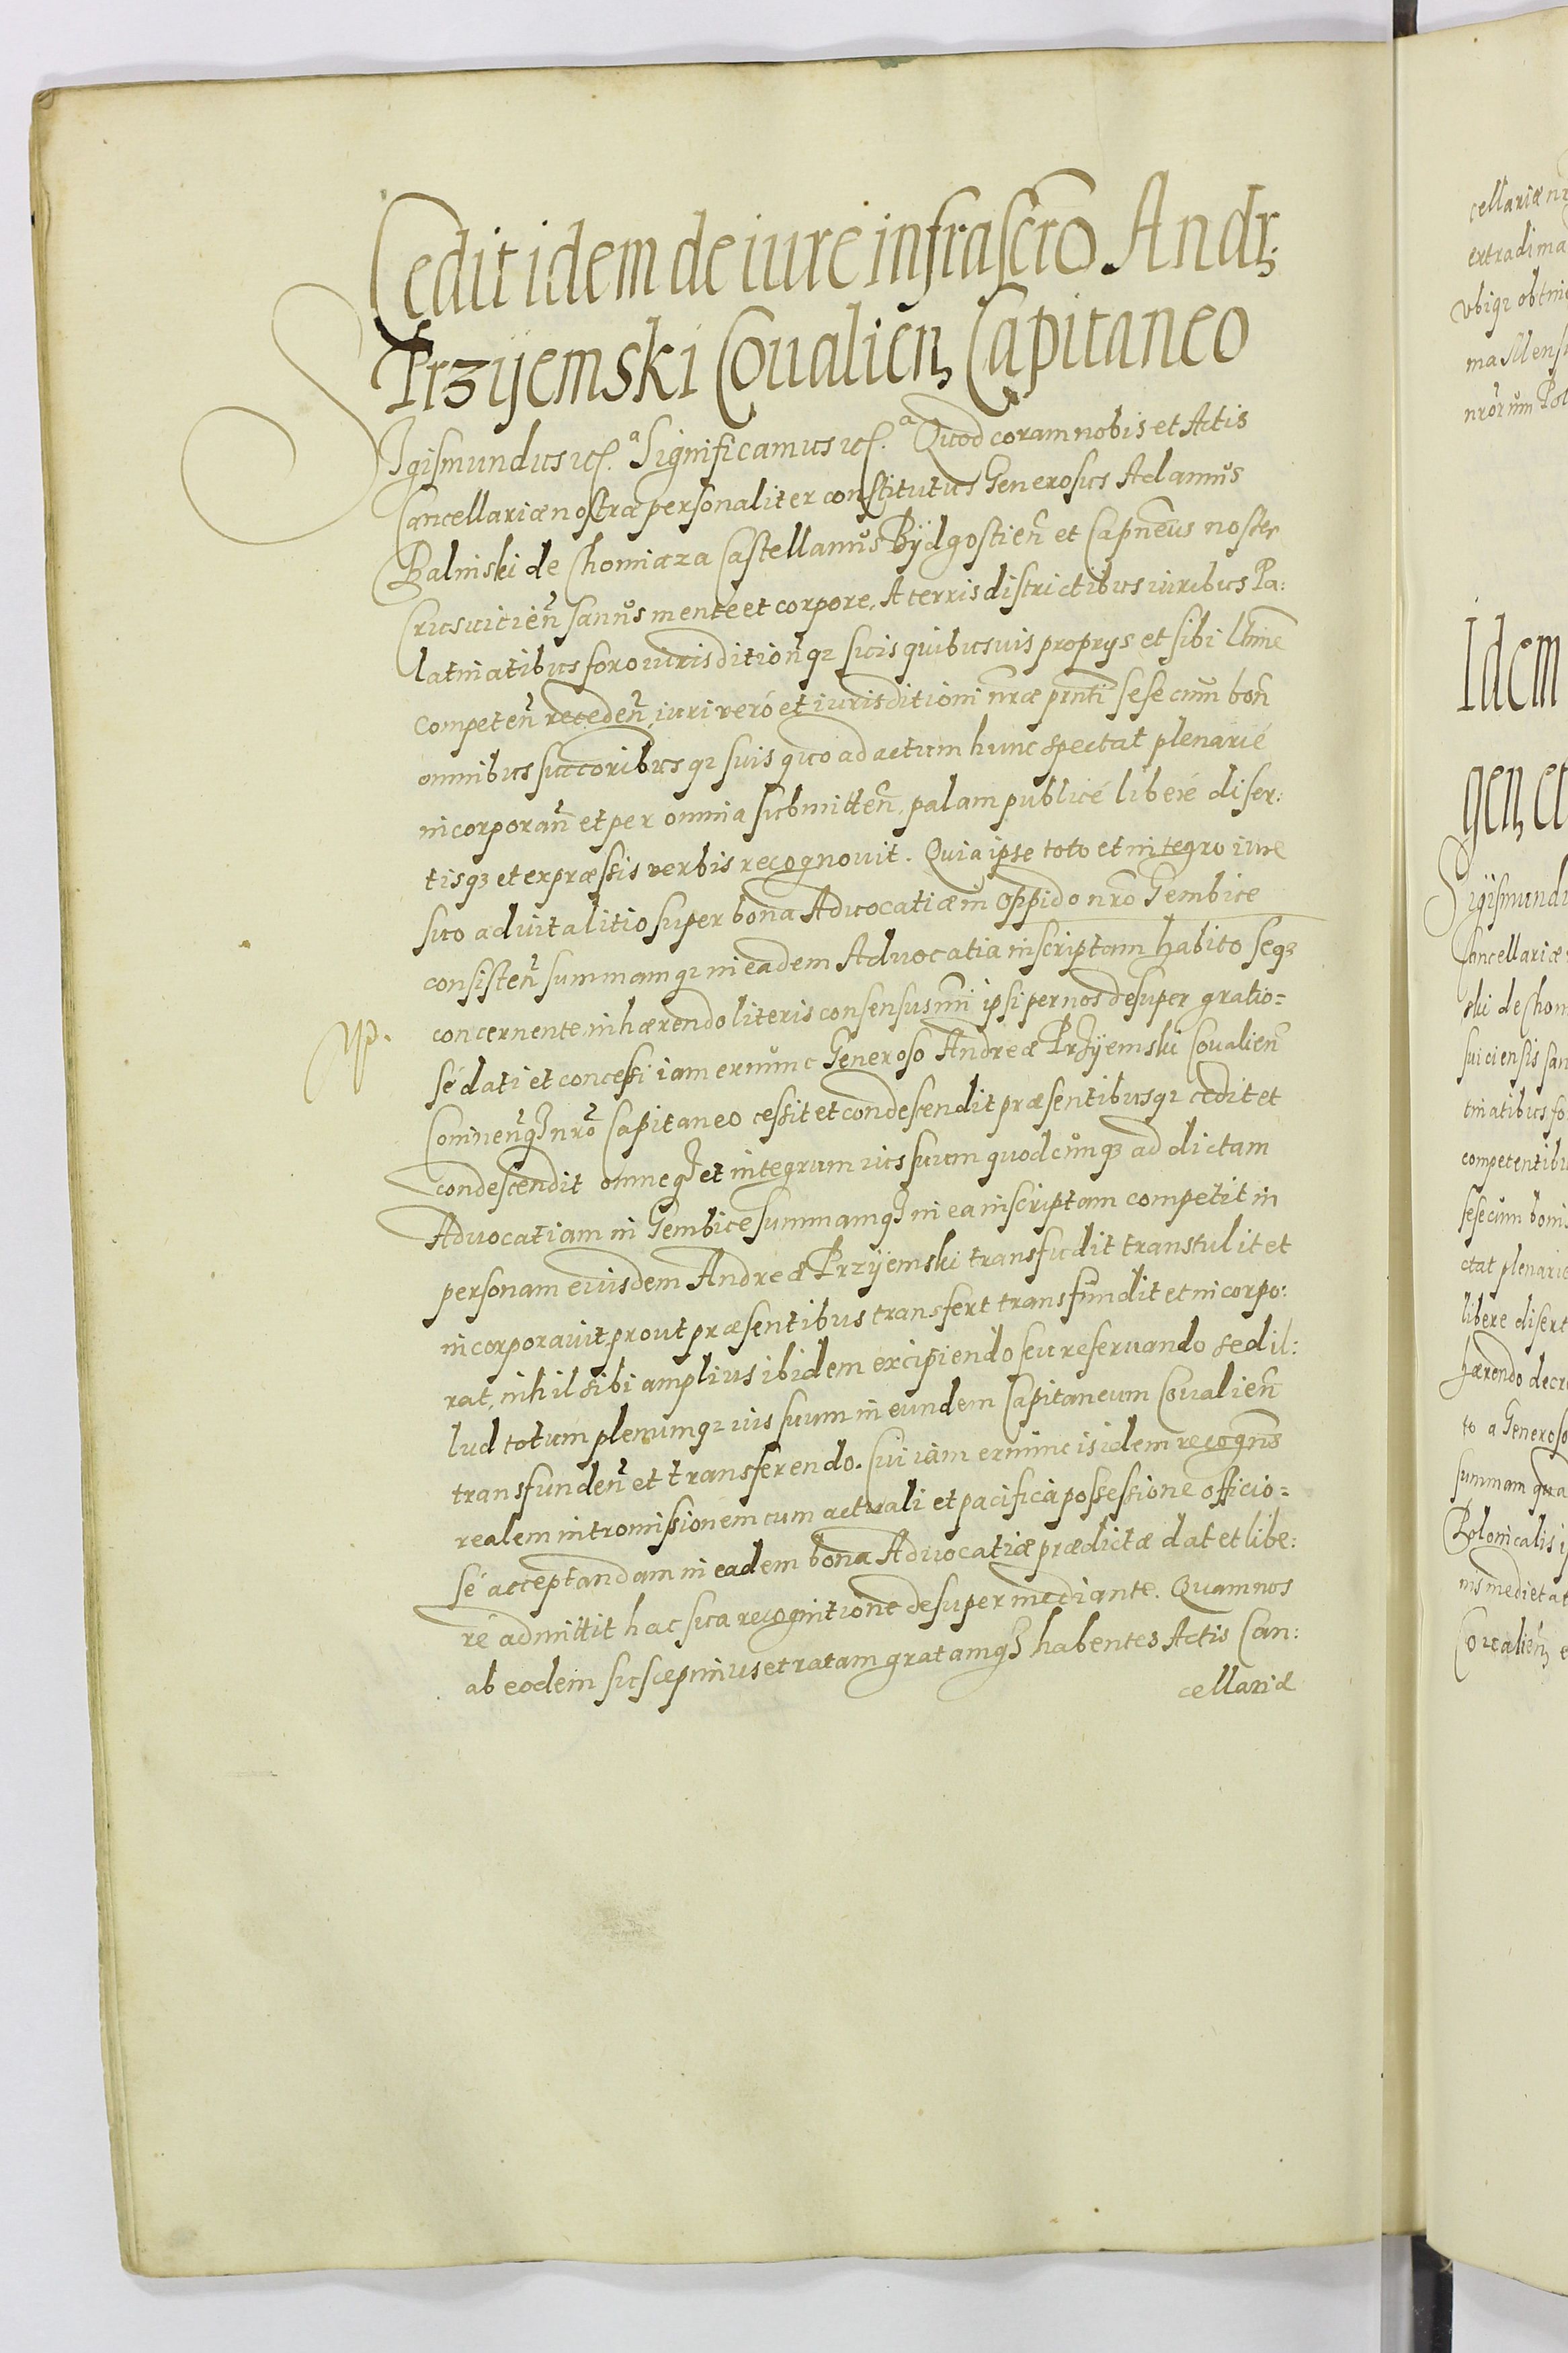 Cedit idem de iure infrascrõ Andr,
Przÿemski Coualień Capitaneo
Sigismundus etc. Significamus etc. Quod coram nobis et Actis
Cancellariæ nostræ personaliter constitutus Generosus Adamus
Balinski de Chomiaza Castellanus Bÿdgostieñ et Capñeus noster
Crusuicieñ sanus mente et corpore, A terris districtibus iuribus Pa:
latinatibus foro iurisditioñq₃ suis quibusuis proprÿs et sibi lt̃ime
competeñ recedeñ, iuri veró et iurisditioni nr̃æ pr̃nti sese cum boñ
omnibus succoribusq₃ suis quo ad actum hunc spectat plenarié
incorporañ et per omnia submitteñ, palam publicé liberé diser:
tisq₃ et expræssis verbis recognouit. Quia ipse toto et integro iure
suo aduitalitio super bona Aduocatiæ in oppido nr̃o Gembice
consisteñ summamq₃ in eadem Aduocatia inscriptam habito seq₃
concernente, inhærendo literis consensus nr̃i ipsi per nos desuper gratio=
sé dati et concessi iam exnunc Generoso Andreæ Przÿemski Coualieñ
Cominenq₃ nr̃o Capitaneo cessit et condescendit præsentibusq₃ cedit et
condescendit omneq₃ et integrum ius suum quodcunq₃ ad dictam
Aduocatiam in Gembice summamq₃ in ea inscriptam competit in
personam eiusdem Andreæ Przÿemski transfudit transtulit et
incorporauit, prout præsentibus transfert transfundit et incorpo:
rat, nihil sibi amplius ibidem excipiendo seu reseruando sed il:
lud totum plenumq₃ ius suum in eundem Capitaneum Coualieñ
transfundeñ et transferendo. Cui iam exnunc is idem recognos̃
realem intromissionem cum actuali et pacifica possessione officio=
sé acceptandam in eadem bona Aduocatiæ prædictæ dat et libe:
ré admittit hac sua recognitione desuper mediante. Quam nos
ab eodem suscepimus et ratam gratamq₃ habentes Actis Can:
cellariæ
cellariæ nr̃
extradi ma
vbiq₃ obtine
nr̃orum Pol
Idem
gen, et
Sigismundu
Cancellariæ
ski de Chom
suiciensis san
tinatibus fo
competentibu
sese cum bonis
ctat plenarie
libere disert
hærendo decre
to a Generoso
summam qua
Polonicalis i
nis medietat
Coualień, e